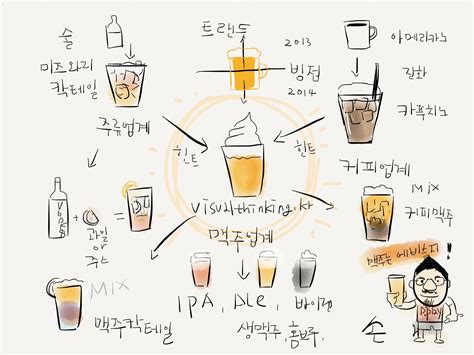 술
미즈와리
칵테일
주류업계
트랜드
2013
빙점
2014
아메리카노
진화
카푸치노
힌트
힌트
커피업계
VODKA
과일
or
주스
visualthinking.kr
맥주업계
MIX
커피맥주
맥주는 에비스지!
MIX
맥주칵테일
IPA, Ale, 바이젠
생맥주, 홈브루,
손